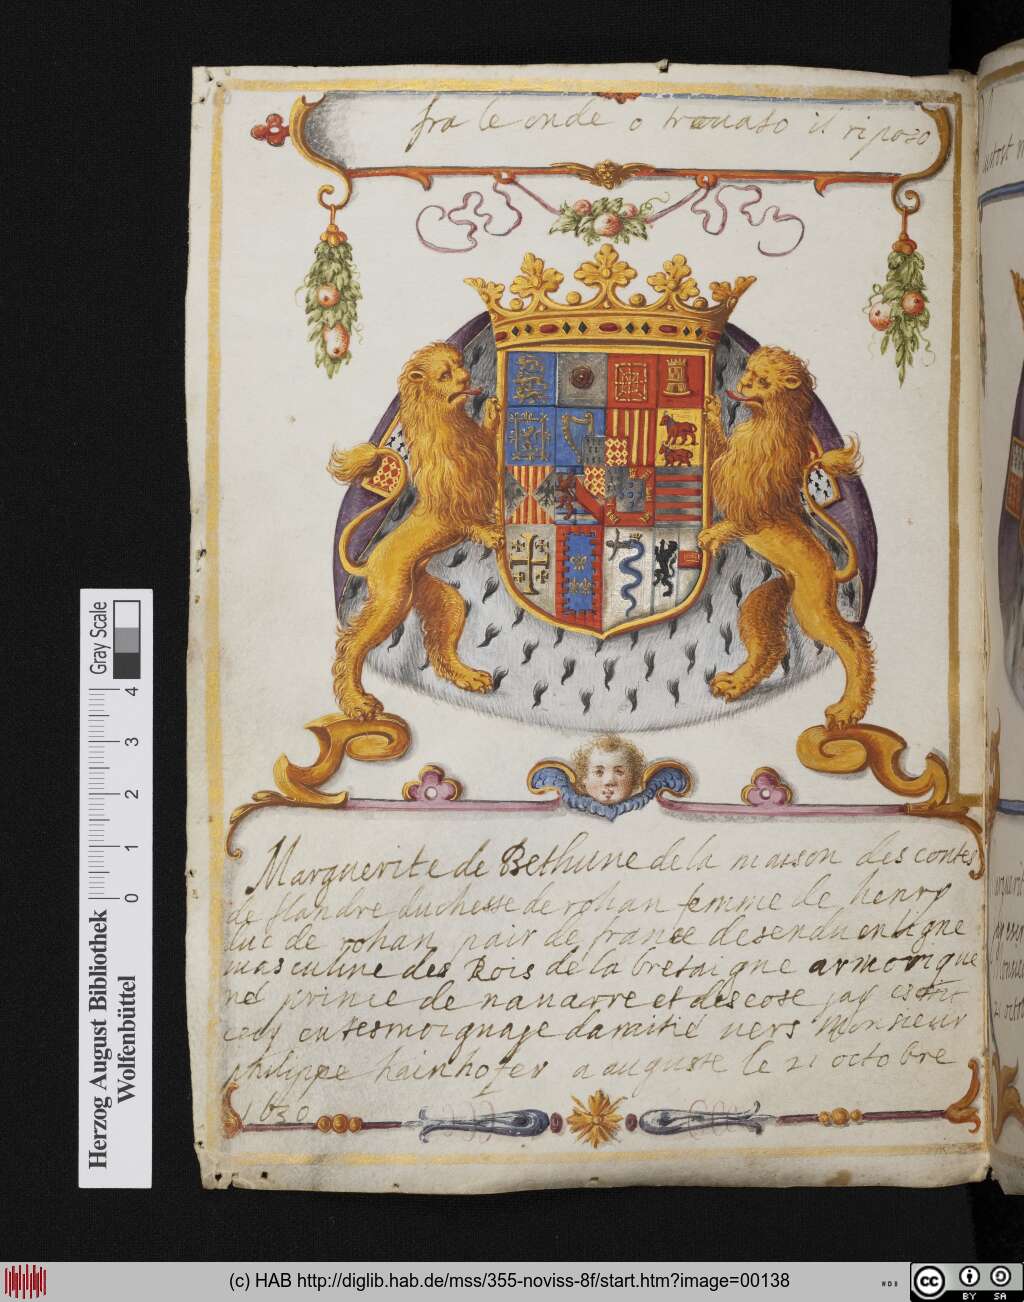 fra le onde o trovato il riposo
Marguerite de Bethune de la maison des contes
de flandre duchesse de rohan femme de henry
duc de rohan pair de france desendu en ligne
masculine des Rois de la bretaigne armorique
né prince de navarre et descose jay escrit
cecy en tesmoignage damitié vers Monsieur
philippe hainhofer a auguste le 21 octobre
1630
Gray Scale
0 1 2 3 4
Herzog August Bibliothek
Wolfenbüttel
(c) HAB http://diglib.hab.de/mss/355-noviss-8f/start.htm?image=00138
WDB
cc
BY SA